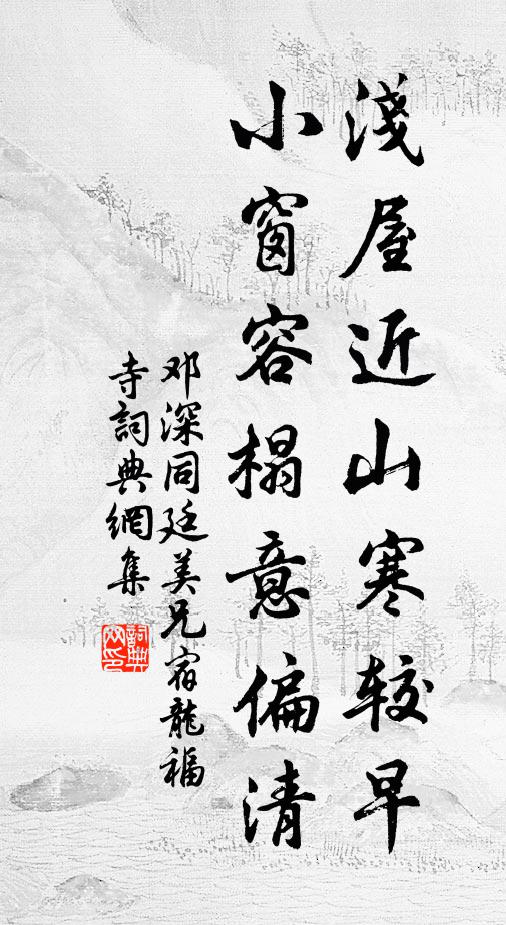 淺屋近山寒较早
小窗容榻意偏清
邓深同廷美兄宿龍福
寺詞典網集
詞典網印